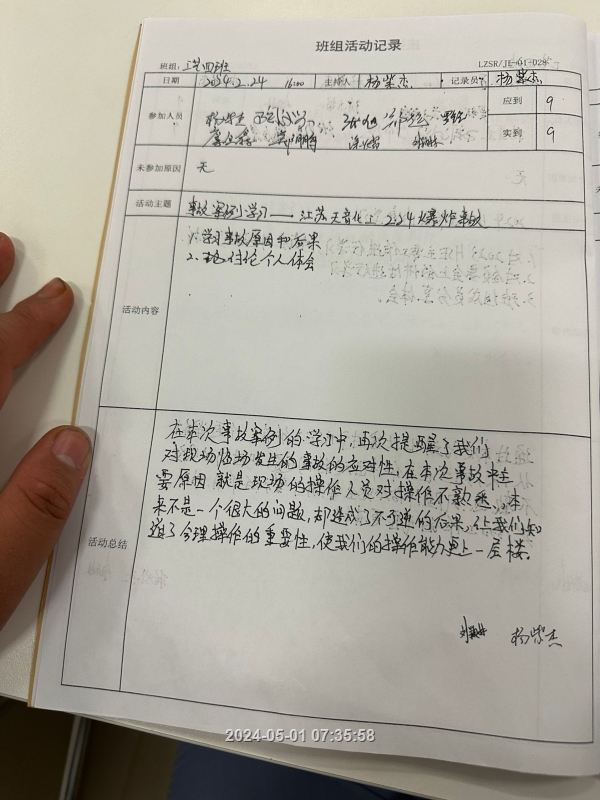 班组活动记录
班组: 工艺四班 LZSR/JL-01-028
日期 2024.2.24 16:00 主持人 杨紫杰 记录员 杨紫杰
参加人员 应到 9
实到 9
未参加原因 无
活动主题 事故案例学习——江苏天音化工2.24爆炸事故
活动内容
1. 学习事故原因和后果
2. 讨论个人体会
活动总结
在本次事故案例的学习中,再次提醒了我们
对现场临场发生的事故的应对性,在本次事故中主
要原因就是现场的操作人员对操作不熟悉,本
来不是一个很大的问题,却造成了不可逆的后果,让我们知
道了合理操作的重要性,使我们的操作能力更上一层楼。
杨紫杰
2024-05-01 07:35:58